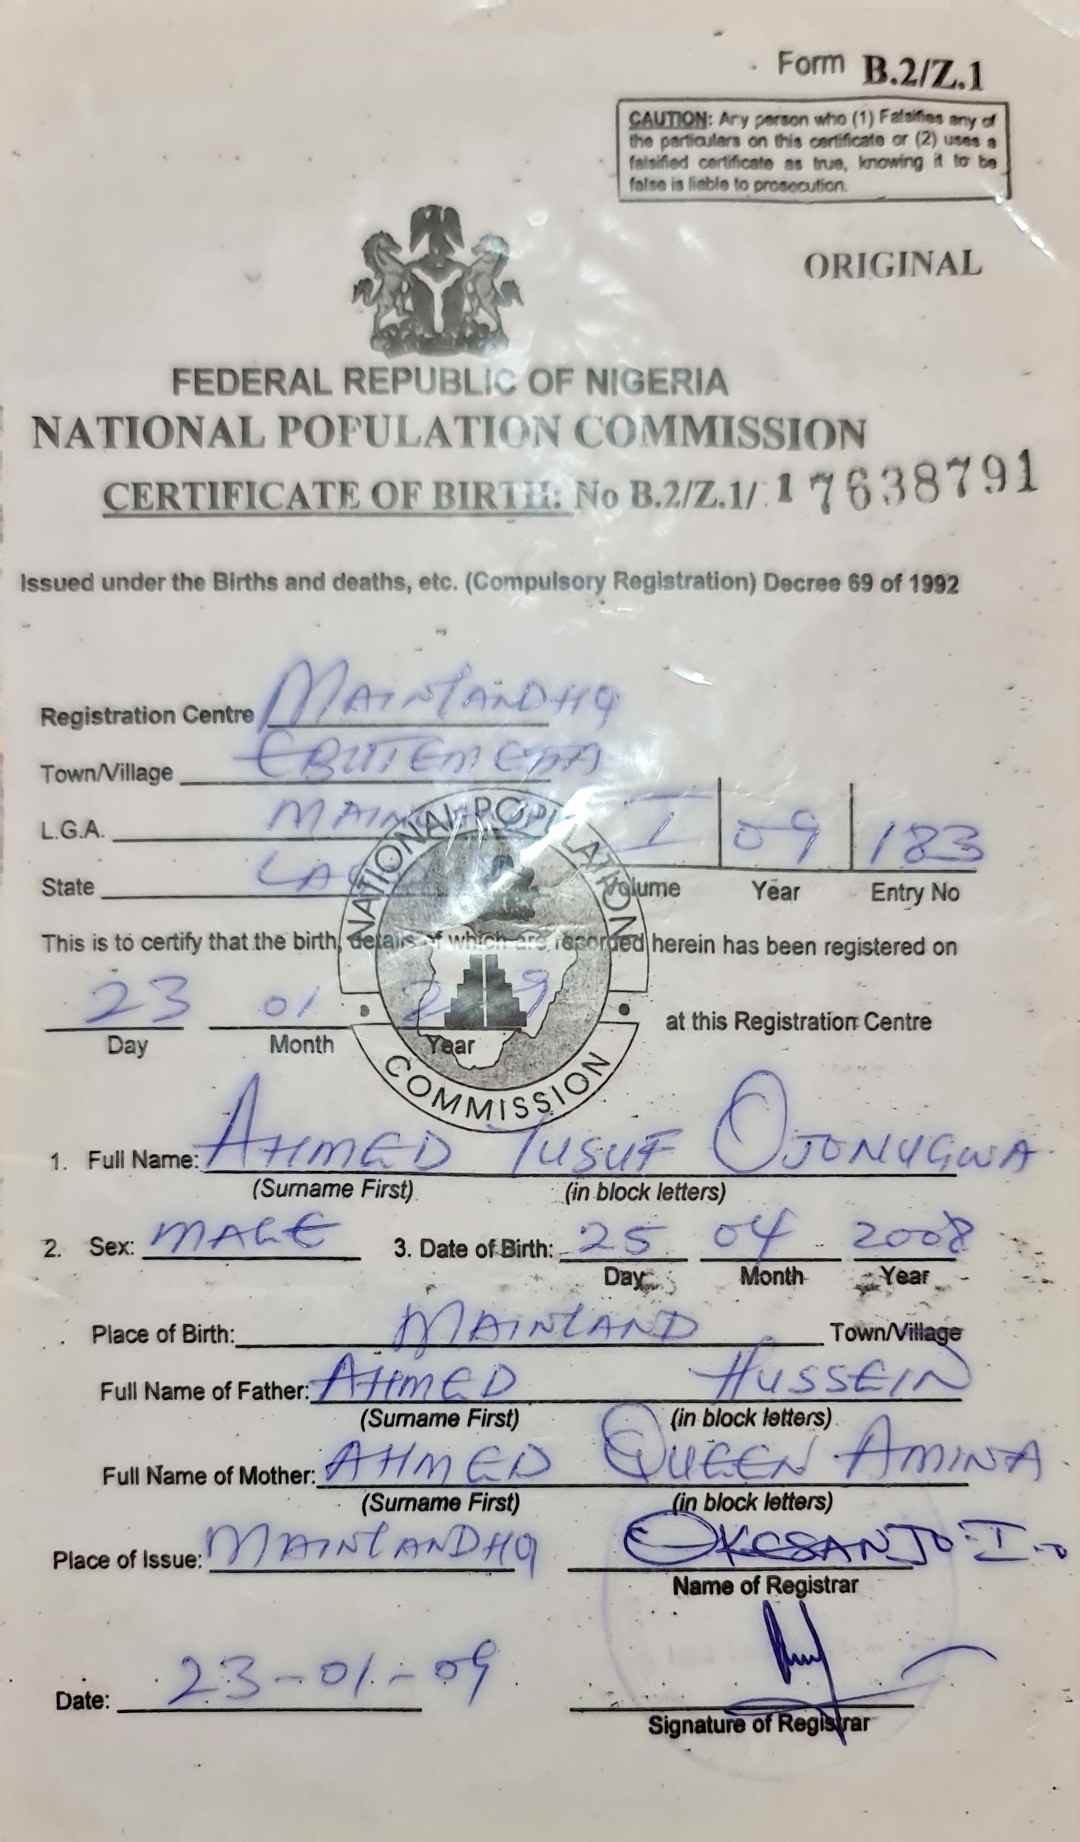 Form B.2/Z.1
CAUTION: Any person who (1) Falsifies any of
the particulars on this certificate or (2) uses a
falsified certificate as true, knowing it to be
false is liable to prosecution.
ORIGINAL
FEDERAL REPUBLIC OF NIGERIA
NATIONAL POPULATION COMMISSION
CERTIFICATE OF BIRTH: No B.2/Z.1/ 17638791
Issued under the Births and deaths, etc. (Compulsory Registration) Decree 69 of 1992
Registration Centre MAINLAND HQ
Town/Village EBUTE META
L.G.A. MAINLAND I 09 183
State Volume Year Entry No
NATIONAL POPULATION COMMISSION
This is to certify that the birth, details of which are recorded herein has been registered on
23 01 at this Registration Centre
Day Month Year
1. Full Name: AHMED YUSUF OJONUGWA
(Surname First) (in block letters)
2. Sex: MALE 3. Date of Birth: 25 04 2008
Day Month Year
Place of Birth: MAINLAND Town/Village
Full Name of Father: AHMED HUSSEIN
(Surname First) (in block letters)
Full Name of Mother: AHMED QUEEN AMINA
(Surname First) (in block letters)
Place of Issue: MAINLAND HQ
Name of Registrar
Date: 23-01-09
Signature of Registrar